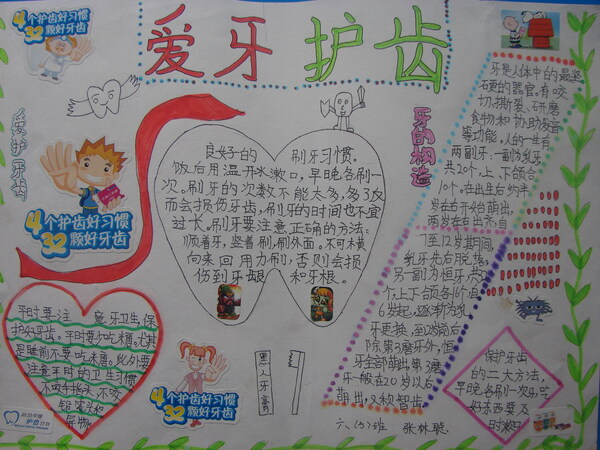 爱牙护齿
4个护齿好习惯
32颗好牙齿
爱护牙齿
4个护齿好习惯
32颗好牙齿
良好的刷牙习惯。
饭后用温开水漱口，早晚各刷一
次。刷牙的次数不能太多，多了反
而会损伤牙齿，刷牙的时间也不宜
过长。刷牙要注意正确的方法：
顺着牙，竖着刷，刷外面。不可木横
向来回用力刷，否则会损
伤到牙龈和牙根。
牙的构造
牙是人体中的最坚
硬的器官。有咬
切、撕裂、研磨
食物和协助发音
等功能。人的一生有
两副牙，一副为乳牙
共20个，上、下颌各
10个。在出生后约半
岁左右开始萌出，
两岁左右出齐
7至12岁期间，
乳牙先后脱落，
另一副为恒牙共32
个，上、下颌各16个，自
6岁起，逐渐为乳
牙更换，至12岁前后
除第3磨牙外，恒
牙全部萌出，第3磨
牙一般在20岁以后
萌出，又称智齿。
平时要注意牙卫生，保
护好牙齿。平时要少吃糖，尤其
是睡前不要吃糖。此外要
注意平时的卫生习惯
不吸手指头，不咬
铅笔头和
异物。
4个护齿好习惯
32颗好牙齿
黑人牙膏
保护牙齿
的二大方法，
早晚各刷一次，吃
好东西要及
时漱口
六、（5）班 张林璇